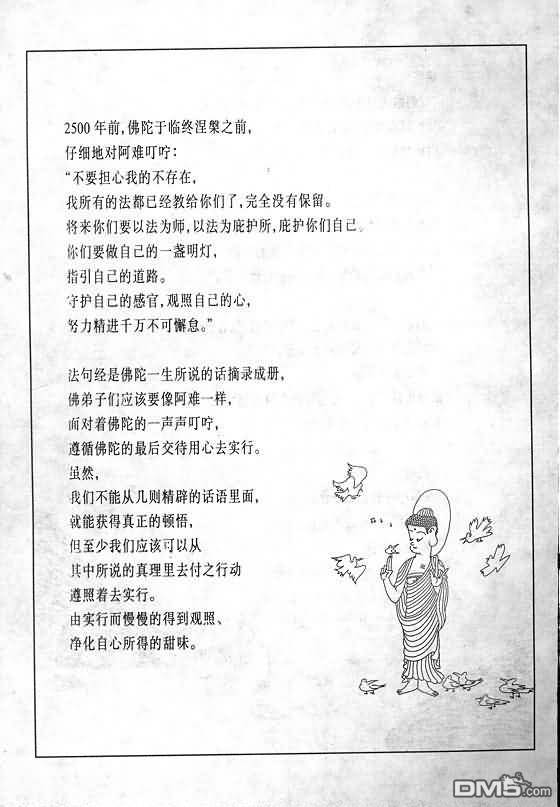 2500 年前,佛陀于临终涅槃之前,
仔细地对阿难叮咛:
“不要担心我的不存在,
我所有的法都已经教给你们了,完全没有保留。
将来你们要以法为师,以法为庇护所,庇护你们自己。
你们要做自己的一盏明灯,
指引自己的道路。
守护自己的感官,观照自己的心,
努力精进千万不可懈怠。”
法句经是佛陀一生所说的话摘录成册,
佛弟子们应该要像阿难一样,
面对着佛陀的一声声叮咛,
遵循佛陀的最后交待用心去实行。
虽然,
我们不能从几则精辟的话语里面,
就能获得真正的顿悟,
但至少我们应该可以从
其中所说的真理里去付之行动
遵照着去实行。
由实行而慢慢的得到观照、
净化自心所得的甜味。
DM5.com